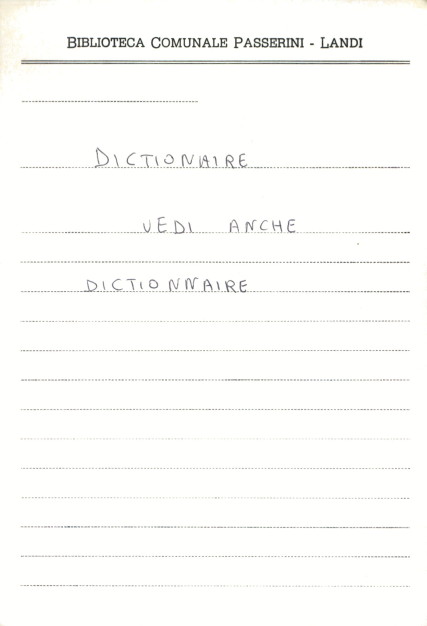 BIBLIOTECA COMUNALE PASSERINI - LANDI
DICTIONAIRE
VEDI ANCHE
DICTIONNAIRE